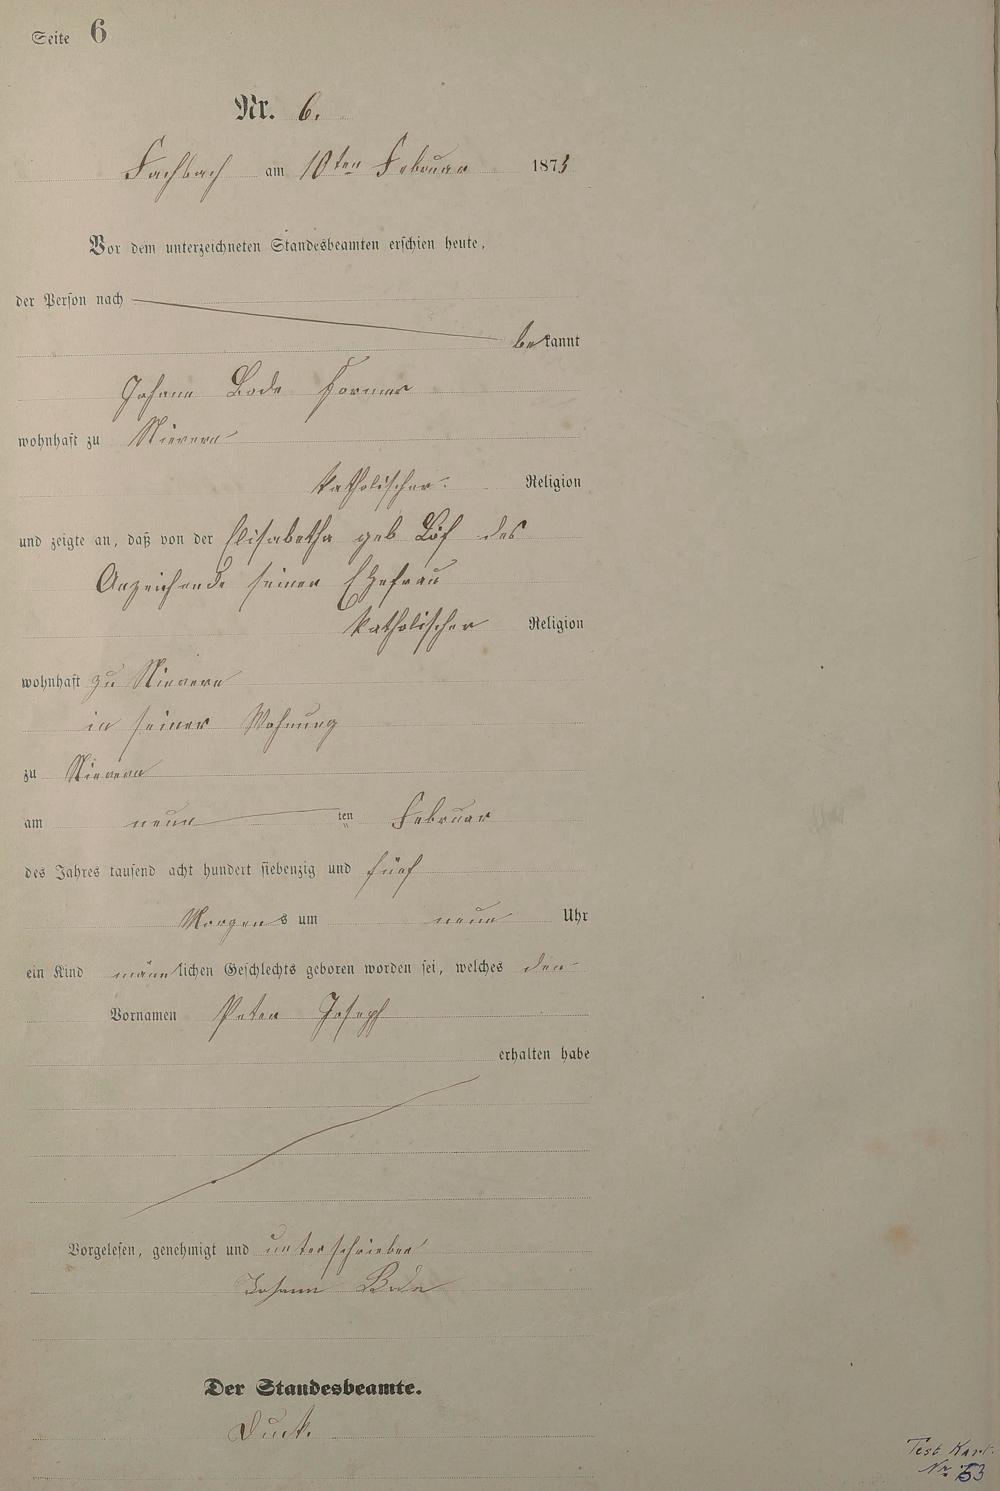 Seite 6
Nr. 6.
Fachbach am 10ten Februar 1875
Vor dem unterzeichneten Standesbeamten erschien heute,
der Person nach
bekannt
Johann Bode Former
wohnhaft zu Nievern
katholischer Religion
und zeigte an, daß von der Elisabetha geb Löf des
Anzeichende seiner Ehefrau
katholischer Religion
wohnhaft zu Nievern
in seiner Wohnung
zu Nievern
am neun ten Februar
des Jahres tausend acht hundert siebenzig und fünf
Morgens um neun Uhr
ein Kind männlichen Geschlechts geboren worden sei, welches den
Vornamen Peter Joseph
erhalten habe
Vorgelesen, genehmigt und unterschrieben
Johann Bode
Der Standesbeamte.
Test Kart.
Nr. 53